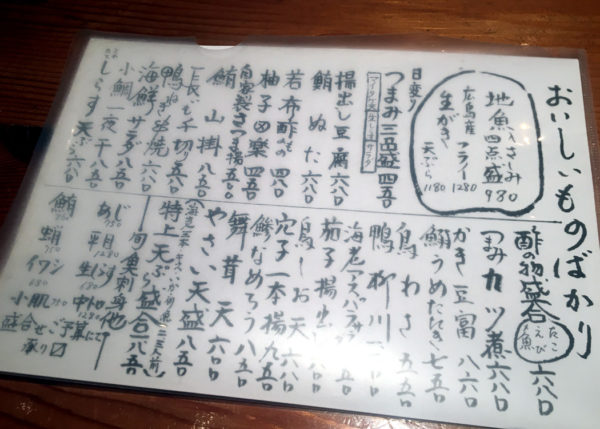 おいしいものばかり
地魚おさしみ
四点盛
980
広島産
生がき
フライ 1280
天ぷら 1180
日変り
つまみ三品盛 四五〇
揚出し豆腐 六八〇
鮪ぬた 六八〇
若布酢もの 四八〇
柚子の 四五〇
自家製さつま揚 五五〇
鮪山掛 八五〇
鴨ねぎ串焼 六八〇
海鮮サラダ 八五〇
小鯛一夜干 八五〇
しらす天ぷら 六八〇
酢の物盛合 たこ えび 〆魚 一六八〇
つまみカツ煮 六八〇
かき豆冨 八八〇
うめたたき 七五〇
鳥わさ 五五〇
鴨柳川
海老アスパラサラダ
茄子揚出し
穴子一本揚 九五〇
鳥しお天 六八〇
鯵なめろう 八五〇
舞茸天 六〇〇
やさい天盛 八五〇
特上天ぷら盛合 二八五〇
旬魚刺身他
あじ
平目
生しらす
中トロ 1280
鮪
蛸
イワシ 680
小肌
盛合せご予算にて
承り〼